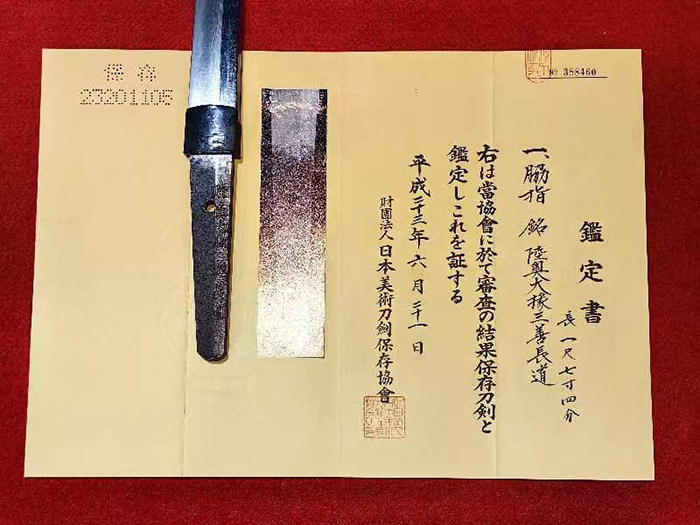 № 358460
鑑定書
一、脇指 銘 陸奥大掾三善長道
長 一尺七寸四分
右は當協會に於て審査の結果保存刀剣と
鑑定しこれを証する
平成二十三年六月二十一日
財團法人 日本美術刀劍保存協會
保存
23201106